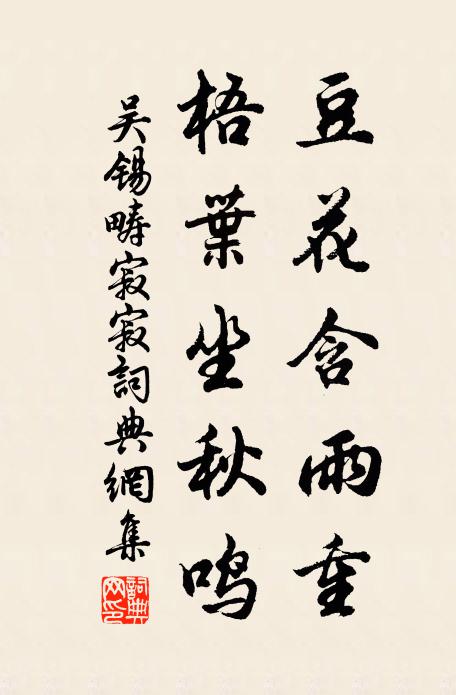 豆花含雨重
梧葉坐秋鸣
吴锡畴寂寂詞典網集
詞典网印